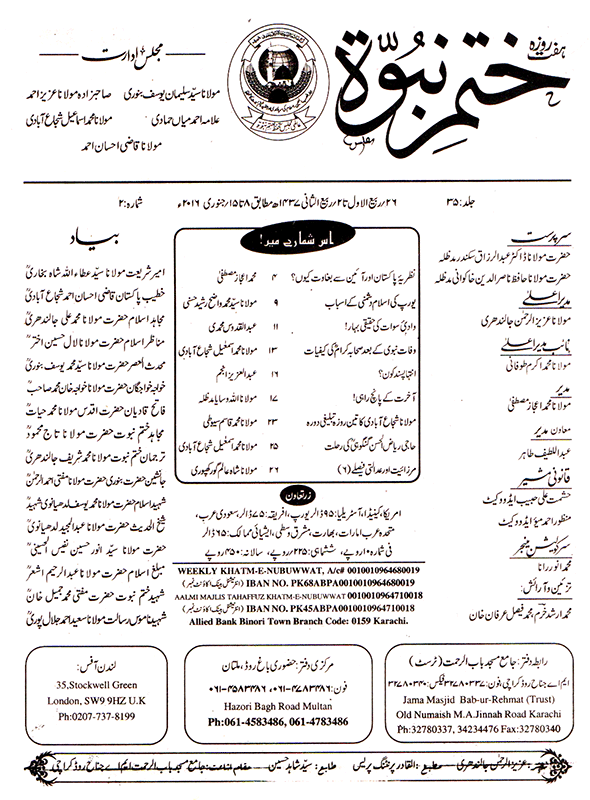 ہفت روزہ
ختم نبوّۃ
مجلس ادارت
مولانا سیّد سلیمان یوسف بنوری صاحبزادہ مولانا عزیز احمد
علامہ احمد میاں حمادی مولانا محمد اسماعیل شجاع آبادی
مولانا قاضی احسان احمد
جلد: ۳۵ ۲۶ / ربیع الاول تا ۲ / ربیع الثانی ۱۴۳۷ھ مطابق ۸ تا ۱۵ / جنوری ۲۰۱۶ء شمارہ: ۲
سرپرست
حضرت مولانا ڈاکٹر عبدالرزاق سکندر مدظلہ
حضرت مولانا حافظ ناصر الدین خاکوانی مدظلہ
مدیر اعلیٰ
مولانا عزیز الرحمٰن جالندھری
نائب مدیر اعلیٰ
مولانا محمد اکرم طوفانی
مدیر
مولانا محمد اعجاز مصطفیٰ
معاون مدیر
عبد اللطیف طاہر
قانونی مشیر
حشمت علی حبیب ایڈووکیٹ
منظور احمد میؤ ایڈووکیٹ
سرکولیشن منیجر
محمد انور رانا
تزئین و آرائش:
محمد ارشد خرم، محمد فیصل عرفان خان
اس شمارے میں!
نظریۂ پاکستان اور آئین سے بغاوت کیوں؟ ۴ محمد اعجاز مصطفیٰ
یورپ کی اسلام دشمنی کے اسباب ۹ مولانا سیّد محمد واضح رشید حسنی
وادیٔ سوات کی حقیقی بہار! ۱۱ عبدالقدوس محمدی
وفات نبوی کے بعد صحابہ کرامؓ کی کیفیات ۱۳ مولانا محمد اسمٰعیل شجاع آبادی
انتہا پسند کون؟ ۱۶ عبدالعزیز انجم
آخرت کے پانچ راہی! ۱۷ مولانا اللہ وسایا مدظلہ
مولانا شجاع آبادی کا تین روزہ تبلیغی دورہ ۲۳ مولانا محمد قاسم سیوطی
حاجی ریاض الحسن گنگوہیؒ کی رحلت ۲۵ مولانا محمد اسمٰعیل شجاع آبادی
مرزائیت اور عدالتی فیصلے (۶) ۲۶ مولانا شاہ عالم گورکھپوری
زر تعاون
امریکا، کینیڈا، آسٹریلیا: ۹۵ ڈالر یورپ، افریقہ: ۷۵ ڈالر، سعودی عرب،
متحدہ عرب امارات، بھارت، مشرق وسطیٰ، ایشیائی ممالک: ۶۵ ڈالر
فی شمارہ ۱۰ روپے، ششماہی: ۲۲۵ روپے، سالانہ: ۴۵۰ روپے
WEEKLY KHATM-E-NUBUWWAT, A/c# 0010010964680019
IBAN NO. PK68ABPA0010010964680019 (انٹرنیشنل بینک اکاؤنٹ نمبر)
AALMI MAJLIS TAHAFFUZ KHATM-E-NUBUWWAT 0010010964710018
IBAN NO. PK45ABPA0010010964710018 (انٹرنیشنل بینک اکاؤنٹ نمبر)
Allied Bank Binori Town Branch Code: 0159 Karachi.
بیاد
امیر شریعت مولانا سیّد عطاء اللہ شاہ بخاریؒ
خطیب پاکستان قاضی احسان احمد شجاع آبادیؒ
مجاہد اسلام حضرت مولانا محمد علی جالندھریؒ
مناظر اسلام حضرت مولانا لال حسین اخترؒ
محدث العصر حضرت مولانا سیّد محمد یوسف بنوریؒ
خواجہ خواجگان حضرت مولانا خواجہ خان محمد صاحبؒ
فاتح قادیان حضرت اقدس مولانا محمد حیاتؒ
مجاہد ختم نبوت حضرت مولانا تاج محمودؒ
ترجمان ختم نبوت حضرت مولانا محمد شریف جالندھریؒ
جانشین حضرت بنوری حضرت مولانا مفتی احمد الرحمٰنؒ
شہید اسلام حضرت مولانا محمد یوسف لدھیانوی شہیدؒ
شیخ الحدیث حضرت مولانا عبدالمجید لدھیانویؒ
حضرت مولانا سیّد انور حسین نفیس الحسینیؒ
مبلغ اسلام حضرت مولانا عبدالرحیم اشعرؒ
شہید ختم نبوت حضرت مفتی محمد جمیل خانؒ
شہید ناموس رسالت مولانا سعید احمد جلال پوریؒ
رابطہ دفتر: جامع مسجد باب الرحمت (ٹرسٹ)
ایم اے جناح روڈ کراچی، فون: ۳۲۷۸۰۳۳۷ فیکس: ۳۲۷۸۰۳۴۰
Jama Masjid Bab-ur-Rehmat (Trust)
Old Numaish M.A.Jinnah Road Karachi
Ph:32780337, 34234476 Fax:32780340
مرکزی دفتر: حضوری باغ روڈ، ملتان
فون: ۰۶۱-۴۷۸۳۴۸۶، ۰۶۱-۴۵۸۳۴۸۶
Hazori Bagh Road Multan
Ph:061-4583486, 061-4783486
لندن آفس:
35,Stockwell Green
London, SW9 9HZ U.K
Ph:0207-737-8199
عزیز الرحمٰن جالندھری مطبع: القادر پرنٹنگ پریس طابع: سیّد شاہد حسین مقام اشاعت: جامع مسجد باب الرحمت ایم اے جناح روڈ کراچی